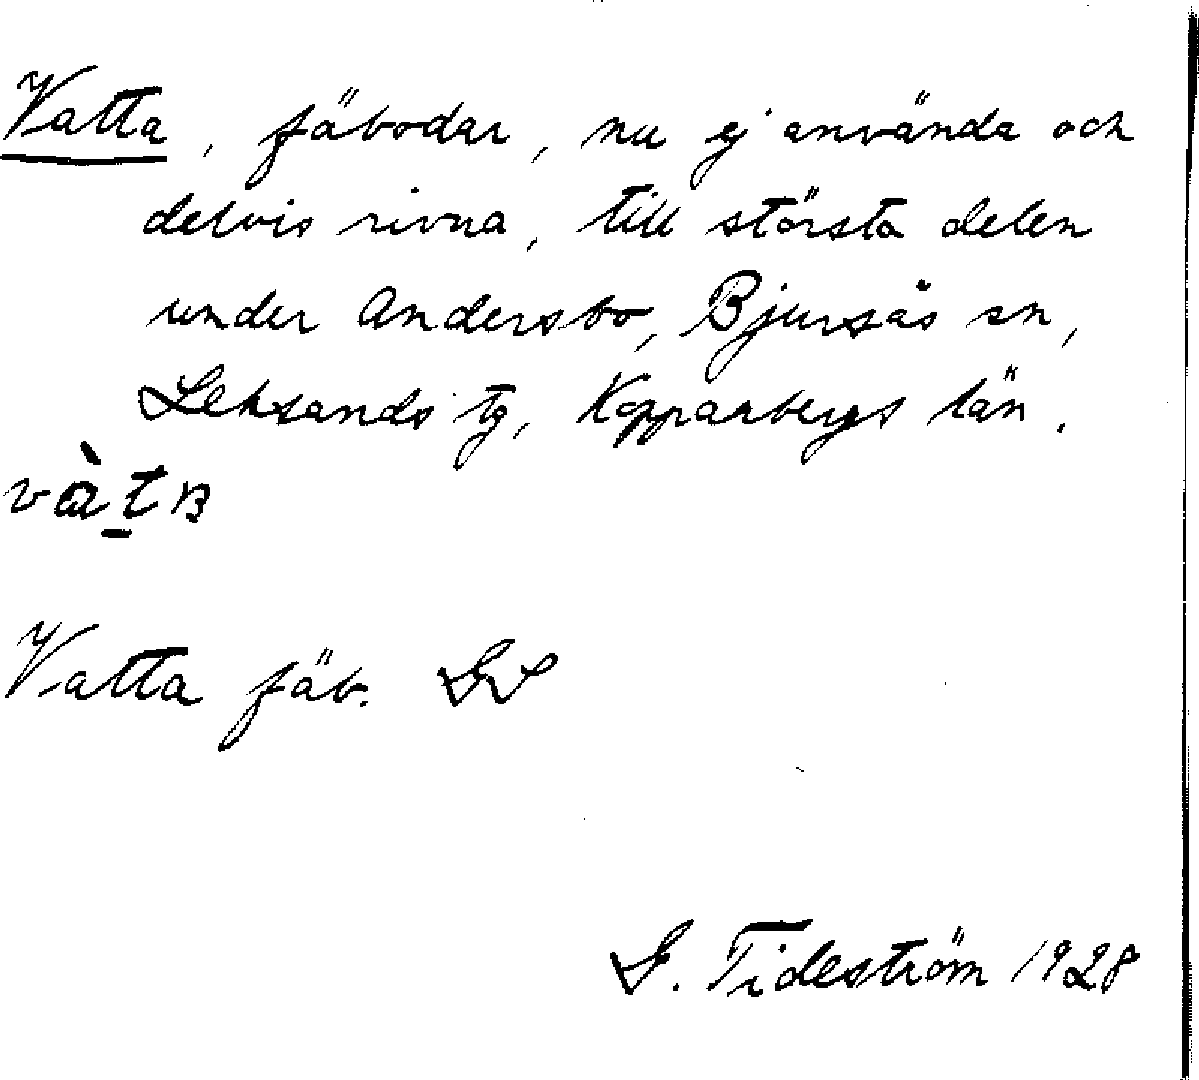 Vatta, fäbodar, nu ej använda och
delvis rivna, till största delen
under Andersbo, Bjursås sn,
Leksands tg, Kopparbergs län.
Vatta fäb.
G. Tideström 1928